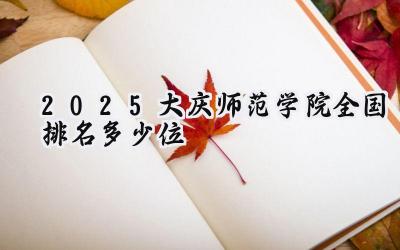 2025大庆师范学院全国
排名多少位